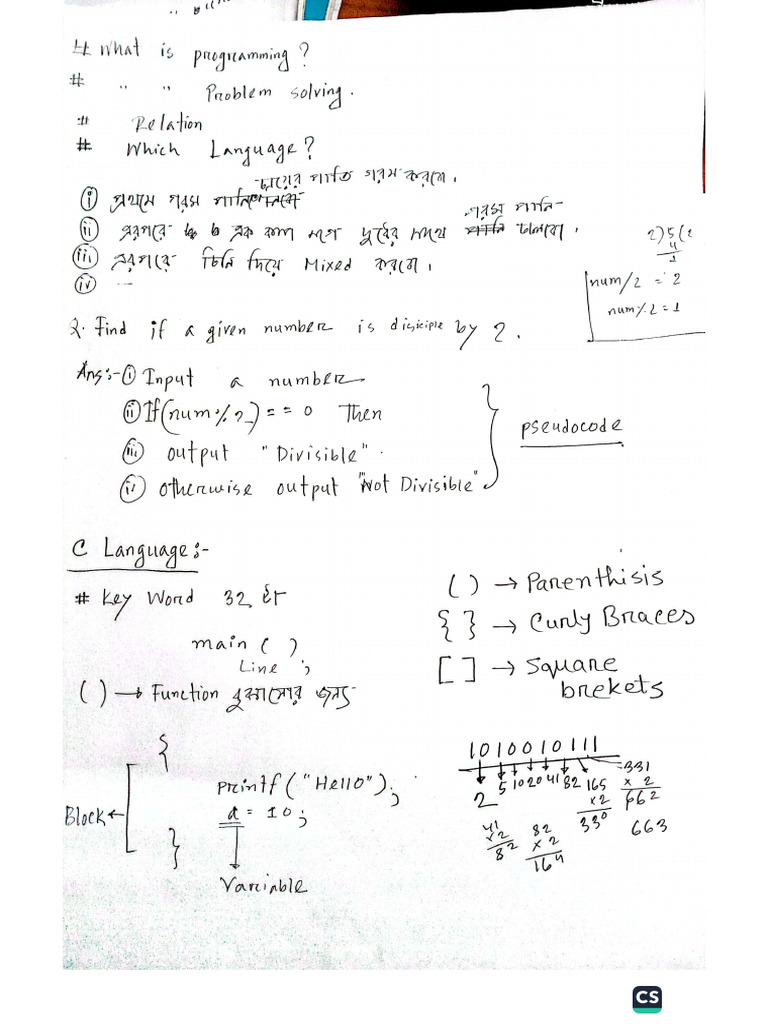 # What is programming?
# " " Problem solving.
# Relation
# Which Language?
চায়ের পাতি গরম করবো।
i প্রথমে গরম পানি
গরম পানি
ii এরপরে এক কাপ মগে দুধের সাথে পানি ঢালবো।
iii এরপরে চিনি দিয়ে Mixed করবো।
iv ---
2)5(2
4
1
num/2 = 2
num%2=1
2. Find if a given number is disiciple by 2.
Ans:- i Input a number
ii If(num%2)==0 Then
iii output "Divisible".
iv otherwise output "Not Divisible"
pseudocode
C Language:-
# Key Word 32 টা
main ( )
Line ;
( ) → Function বুঝানোর জন্য
( ) → Parenthisis
{ } → Curly Braces
[ ] → Square brekets
{
printf("Hello");
a = 10;
}
Block ←
Variable
1010010111
2 5 10 20 41 82 165 331
x 2
662
663
x2
330
41
x2
82
82
x 2
164
CS